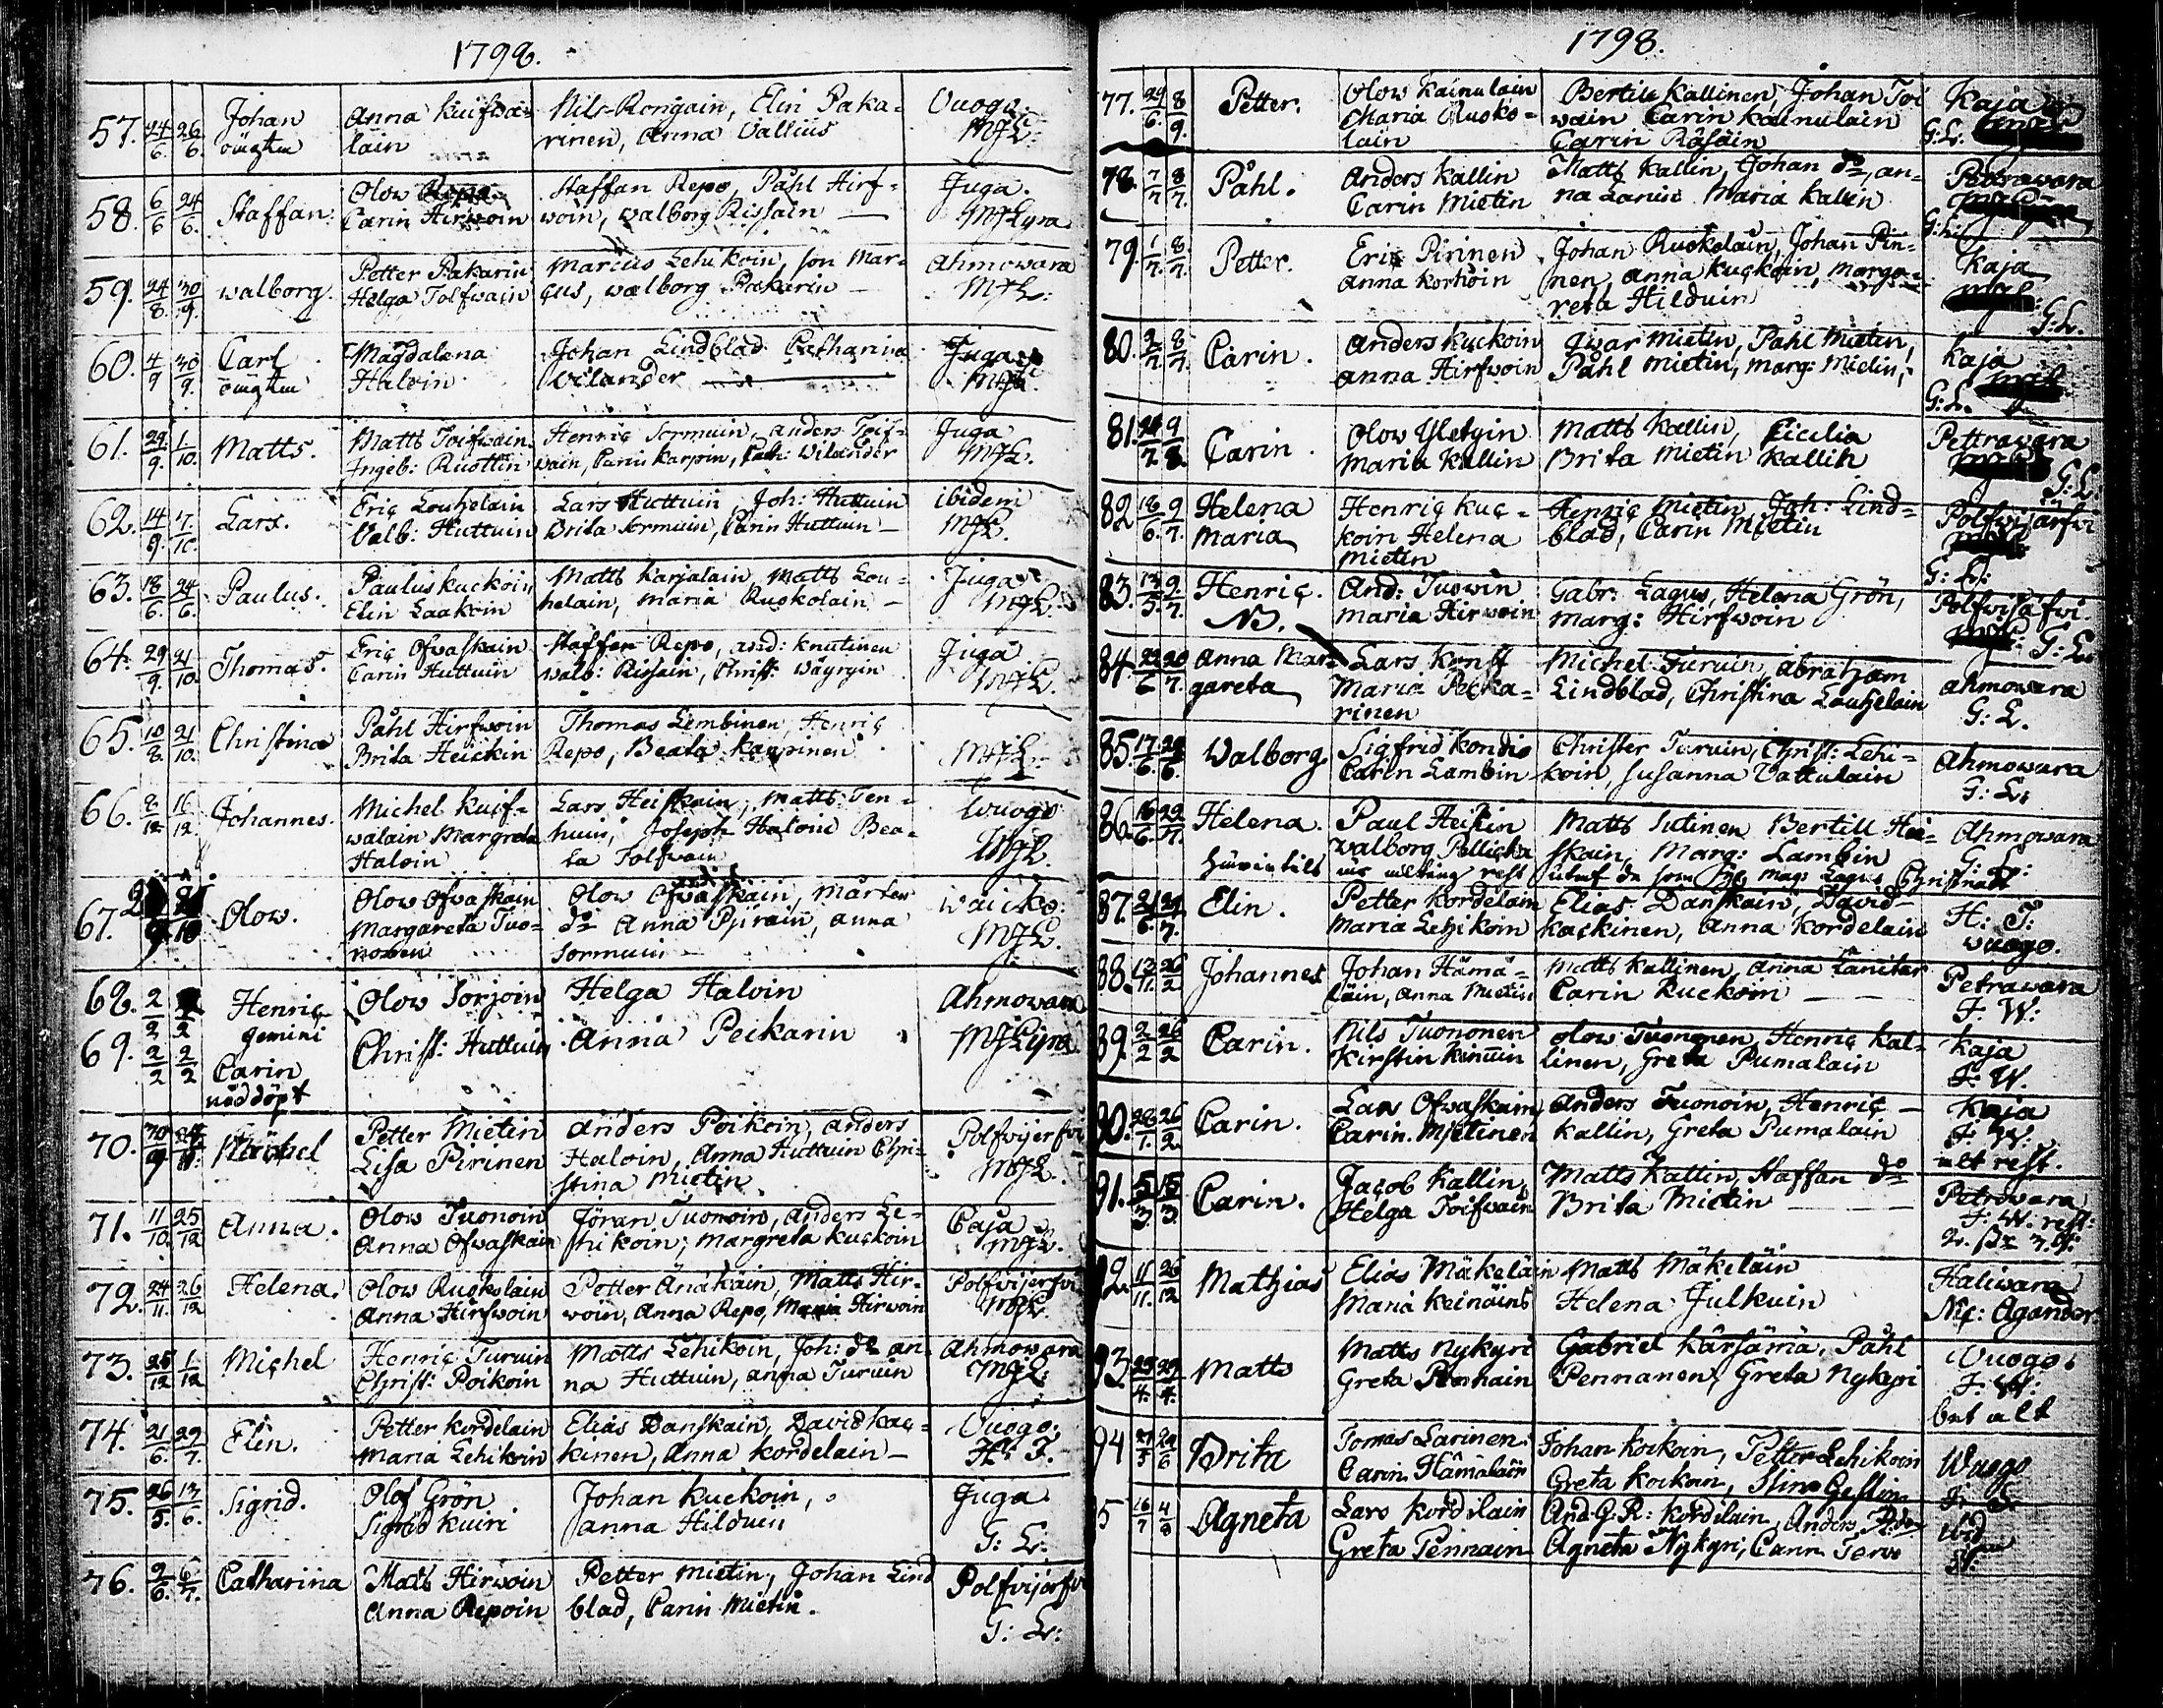 1798.
57. 24/6. 26/6. Johan Anna Kuifwa= Nils Rongain, Elin Paka= Vuogo.
oägten lain rinen, Anna Vallius MJL.
58. 6/6 24/6. Staffan. Olow Repo Staffan Repo, Påhl Hirf= Juga.
Carin Hirwoin woin, walborg Rissain — MJLyra
59. 24/8. 30/9. walborg. Petter Pakarin Marcus Lehikoin, son Mar= Ahmowara
Helga Tolfwain cus, walborg Pakarin — MJL:
60. 4/9 30/9. Carl Magdalena Johan Lindblad Catharina Juga
oägten Haloin Wilander — MJL
61. 29/9. 1/10. Matts. Matts Toifwain Henric Sormuin, anders Toif= Juga
Ingeb: Ruottin wain, Carin Karpin, Cath: Wilander MJL.
62. 14/9. 17/10. Lars. Eric Louhelain Lars Huttuin Joh: Huttuin ibidem
Valb: Huttuin Brita Sormuin, Carin Huttuin — MJL.
63. 18/6. 24/6. Paulus. Paulus kuckoin Matts Karjalain, Matts Lou= Juga
Elin Laakoin helain, Maria Ruokolain — MJL.
64. 29/9. 21/10. Thomas. Eric Ofwaskain Staffan Repo, and: Knutinen Juga
Carin Huttuin walb: Rissain, Christ: Wäyryin MJL.
65. 10/8. 21/10. Christina Påhl Hirfwoin Thomas Limbinen, Henric
Brita Heickin Repo, Beata Kaupinen MJL.
66. 8/12. 16/12. Johannes. Michel Kuif= Lars Heiskain, Matts Ten= Wuogo
walain Margreta huin, Joseph Haloin Bea= MJL.
Haloin ta Tolfwain
67. Olow. Olow Ofwaskain Olow Ofwaskain, Mårten waicko:
Margareta Tuo= do Anna Pyrain, anna MJL.
nonen Sormuin
68. 2/2 Henric Olow Sorjoin Helga Haloin Ahmowara
gemini
69. 2/2 2/2 Carin Christ: Huttuin Anna Peikarin MJLyra
nöddöpt
70. Michel Petter Mietin Anders Poikoin, anders Polfvijerfvi
Lisa Pirinen Haloin, Anna Huttuin Chri= MJL.
stina Mietin
71. 11/10. 25/12 Anna. Olow Tuonoin Jöran Tuonoin, anders Le= Caja
Anna Ofwaskain hikoin, Margreta kuckoin MJL.
72. 24/11. 26/12 Helena. Olow Ruokolain Petter Änäkäin, Matts Hir= Polfvijerfvi
Anna Hirfwoin woin, Anna Repo, Maria Hirwoin MJL.
73. 25/12 1/12 Michel Henric Turuin Matts Lehikoin, Joh: do an= Ahmowara
Christ: Poikoin na Huttuin, anna Turuin MJL:
74. 21/6. 29/7. Elin. Petter kordelain Elias Danskain, David kac= Vuogo:
Maria Lehikoin kinen, Anna kordelain — H: T.
75. 26/5. 13/6. Sigrid. Olof Grön Johan kuckoin, Juga
Sigrid kuiri anna Hilduin G: L.
76. 2/6. 6/7. Catharina Matts Hirwoin Petter Mietin, Johan Lind Polfvijerfvi
Anna Repoin blad, Carin Mietin. G: L:
1798.
77. 29/6. 8/9. Petter. Olow kainulain Bertill Kallinen, Johan Toi Kaja
Maria Ruoko= wain Carin kainulain G:L.
lain Carin Räsäin
78. 7/7 8/7. Påhl. Anders Kallin Matts Kallin, Johan do, an= Petrawara
Carin Mietin na Lanin Maria Kallin G:L:
79. 1/7. 8/7. Petter. Eric Pirinen Johan Ruokolain, Johan Piri= Kaja
Anna Korhoin nen, Anna kuckoin, Marga=
reta Hilduin G:L.
80. 2/7 8/7. Carin. Anders kuckoin Iwar Mietin, Påhl Mietin, Kaja
anna Hirfwoin Påhl Mietin, Marg: Mietin, G:L.
81. 9/8. Carin. Olow Yletyin Matts Kallin, Cicilia Pettrawara
Maria Kallin Brita Mietin Kallin G:L.
82 18/6. 9/7. Helena Henric kuc= Henric Mietin, Joh: Lind= Polfvijärfvi
Maria koin Helena blad, Carin Mietin
Mietin G: L:
83. 13/5. 9/7. Henric. And: Tuowin Gabr: Lagus, Helena Grön, Polfvijäfvi.
NB. Maria Hirwoin Marg: Hirfwoin G: L.
84. 22/6 20/7. Anna Mar= Lars Konst Michel Turuin, abraham ahmowara
gareta Maria Pecka= Lindblad, Christina Louhelain G: L.
rinen
85. 17/6. Walborg. Sigfrid Kondio Christer Turuin, Christ: Lehi= Ahmowara
Carin Lambin koin, Susanna Vattulain G: L.
86. 16/6. 22/7. Helena. Paul Heiskin Matts Sutinen Bertill Hei= Ahmowara
Walborg Pollicka skain, Marg: Lambin G: L:
87. 21/6. 29/7. Elin. Petter kordelain Elias Danskain, David H: T:
Maria Lehikoin kackinen, Anna kordelain wuogo.
88. 13/11. 26/2. Johannes Johan Hämä= Matts Kallinen, Anna Lanitar Petrawara
läin, Anna Mietin Carin Kuckoin — — F: W:
89. 2/2 26/2 Carin. Nils Tuononen Olow Tuononen, Henric kal= Kaja
Kirstin Kinnuin linen, Greta Pumalain F: W.
90. 28/1. 26/2. Carin. Lars Ofwaskain Anders Tuonoin, Henric — Kaja
Carin Mietinen kallin, Greta Pumalain F: W:
alt rest.
91. 5/3. 15/3. Carin. Jacob Kallin, Matts Kallin, Staffan do Petrowara
Helga Toifwain Brita Mietin — — — F: W. rest:
92 11/11. 26/12 Mathias Elias Mäkeläin Matts Mäkeläin Haliwara
Maria Keinäins Helena Julkuin Nic: Agander
93 29/4. Matts Matts Nykyri Gabriel Kärsämä, Påhl Vuogo.
Greta Penhain Pennanen, Greta Nykyri F: W:
bet alt
94 Brita Tomas Larinen Johan Koikoin, Petter Lehikoin Wuogo
Carin Hämäläin Greta Koikoin, Stina Gestrin
5 16/7 4/8 Agneta Lars Kordelain And. G. R: Kordelain, Anders
Greta Pennain Agneta Nykyri, Carin Tarvo